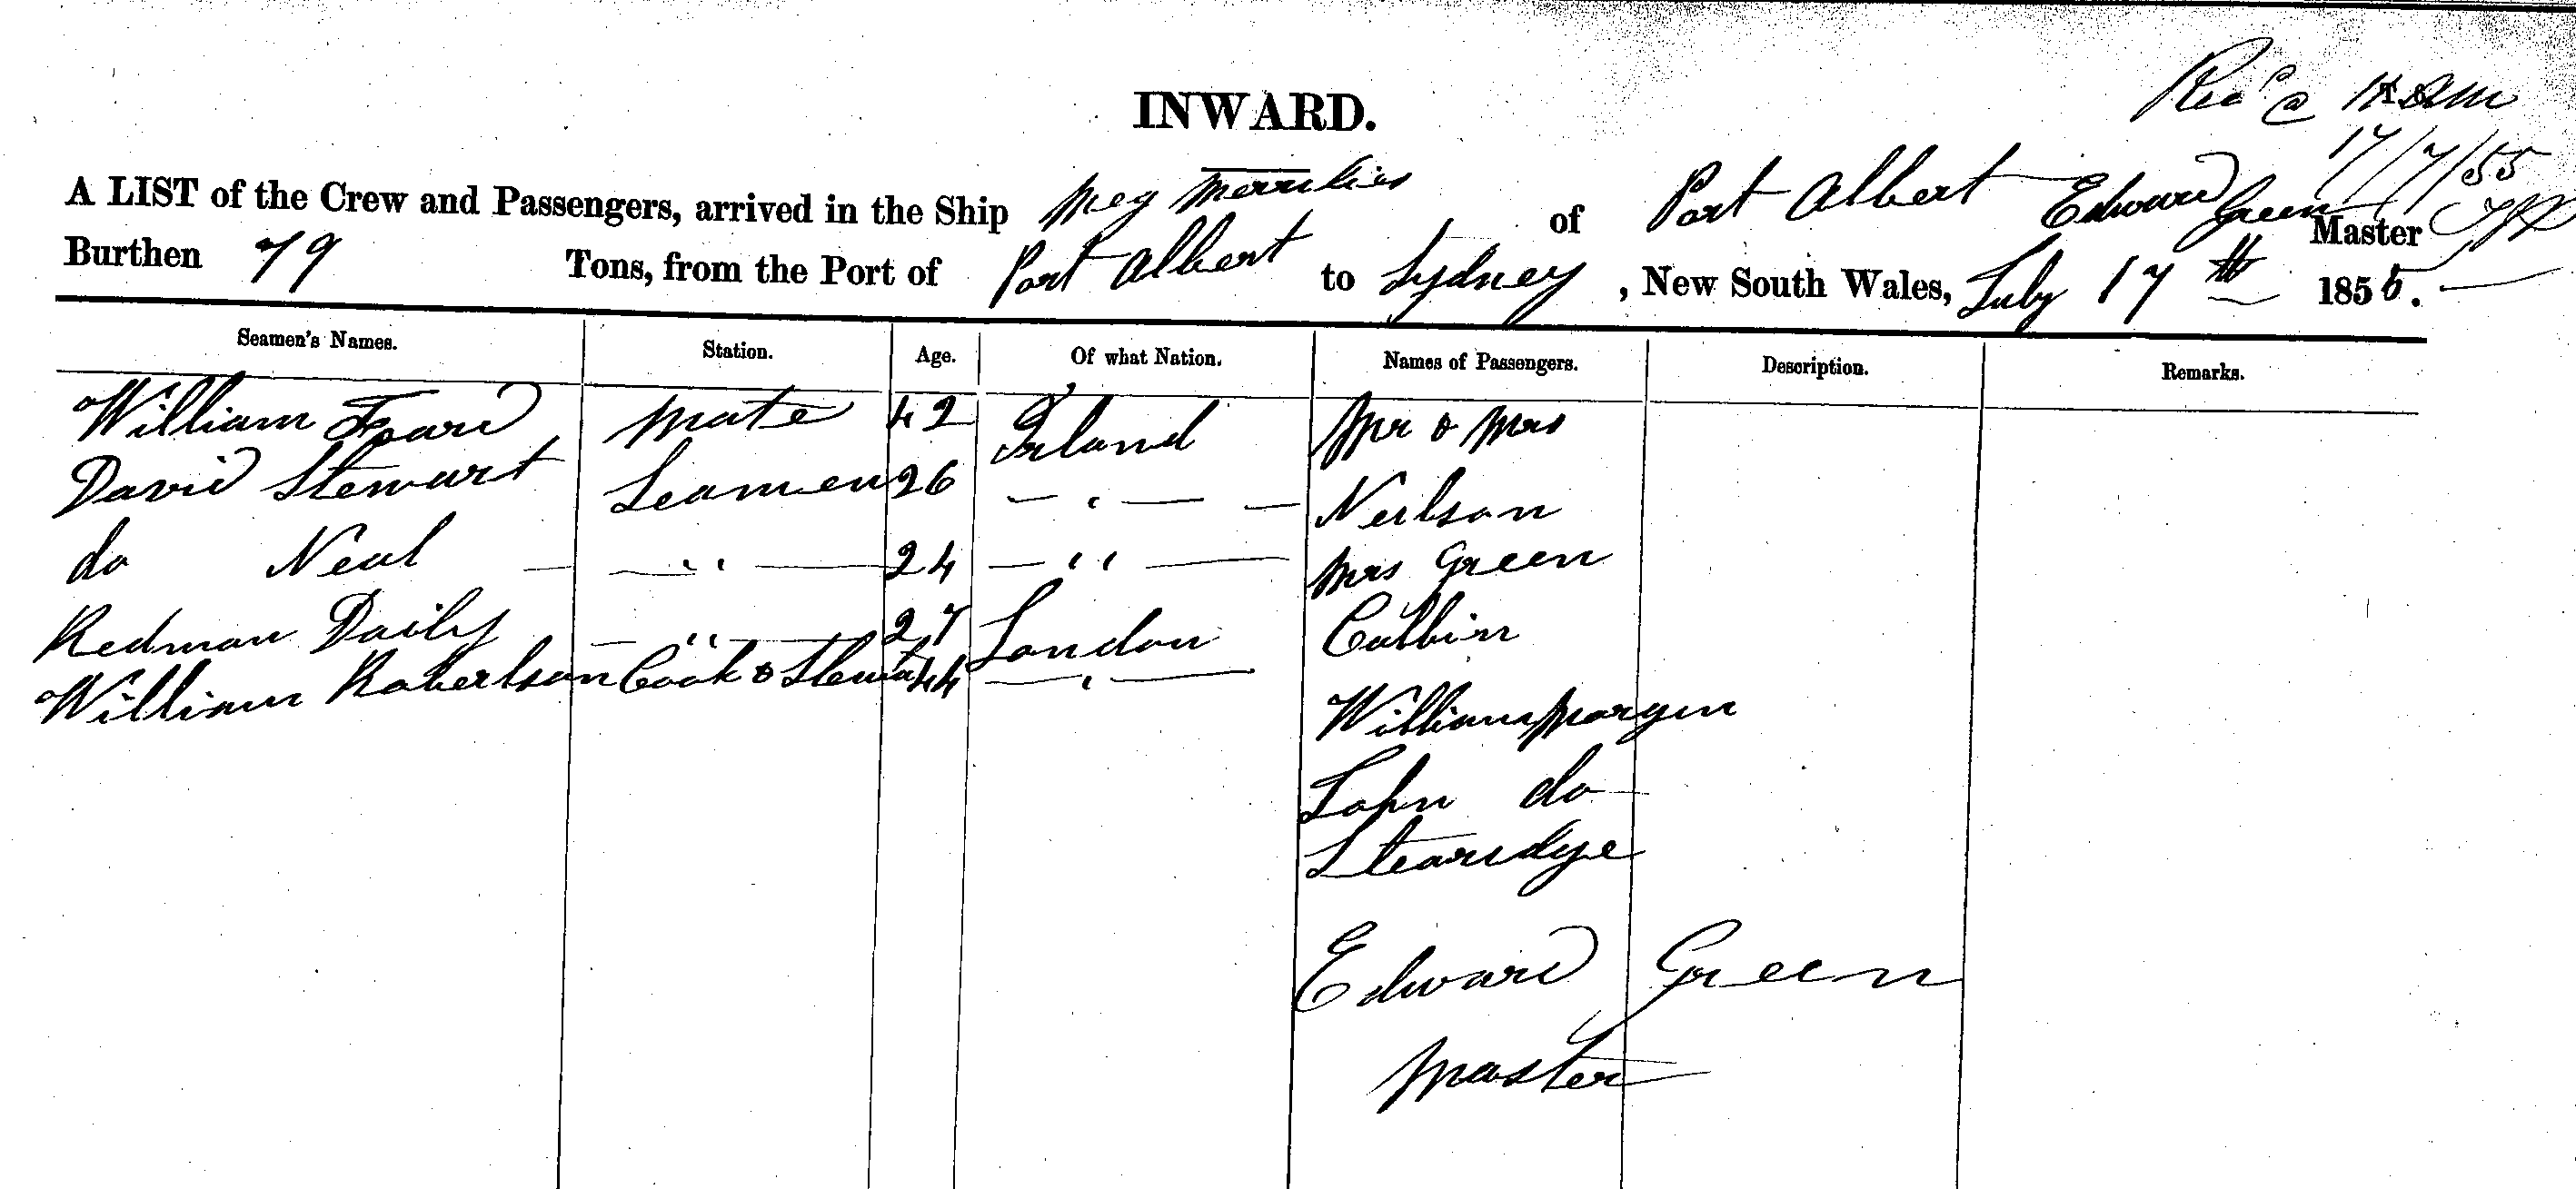 INWARD.
Recd @
17/7/55
A LIST of the Crew and Passengers, arrived in the Ship Meg Merrilies of Port Albert Edward Green Master
Burthen 79 Tons, from the Port of Port Albert to Sydney, New South Wales, July 17th 1855.
Seamen's Names. Station. Age. Of what Nation. Names of Passengers. Description. Remarks.
William Mate 42 Irland Mr & Mrs
David Stewart Seamen 26 — " — — Neilson
do Neal — — " — 24 — " — Mrs Green
Redman Daily — " — 27 London Cubbin
William Robertson Cook & Steward 44 — " — William Morgin
John do
Stearidge
Edward Green
Master